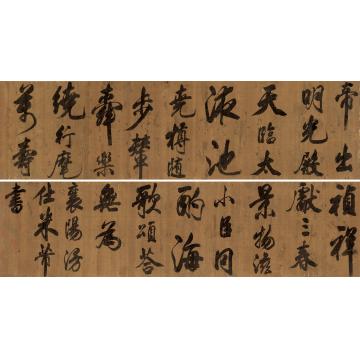 帝出
明光殿
天臨太
液池
堯樽随
步輦
舜樂
繞行麾
萬壽
禎祥
獻三春
景物滋
小臣同
酌海
歌頌荅
無為
襄陽漫
仕米芾
書